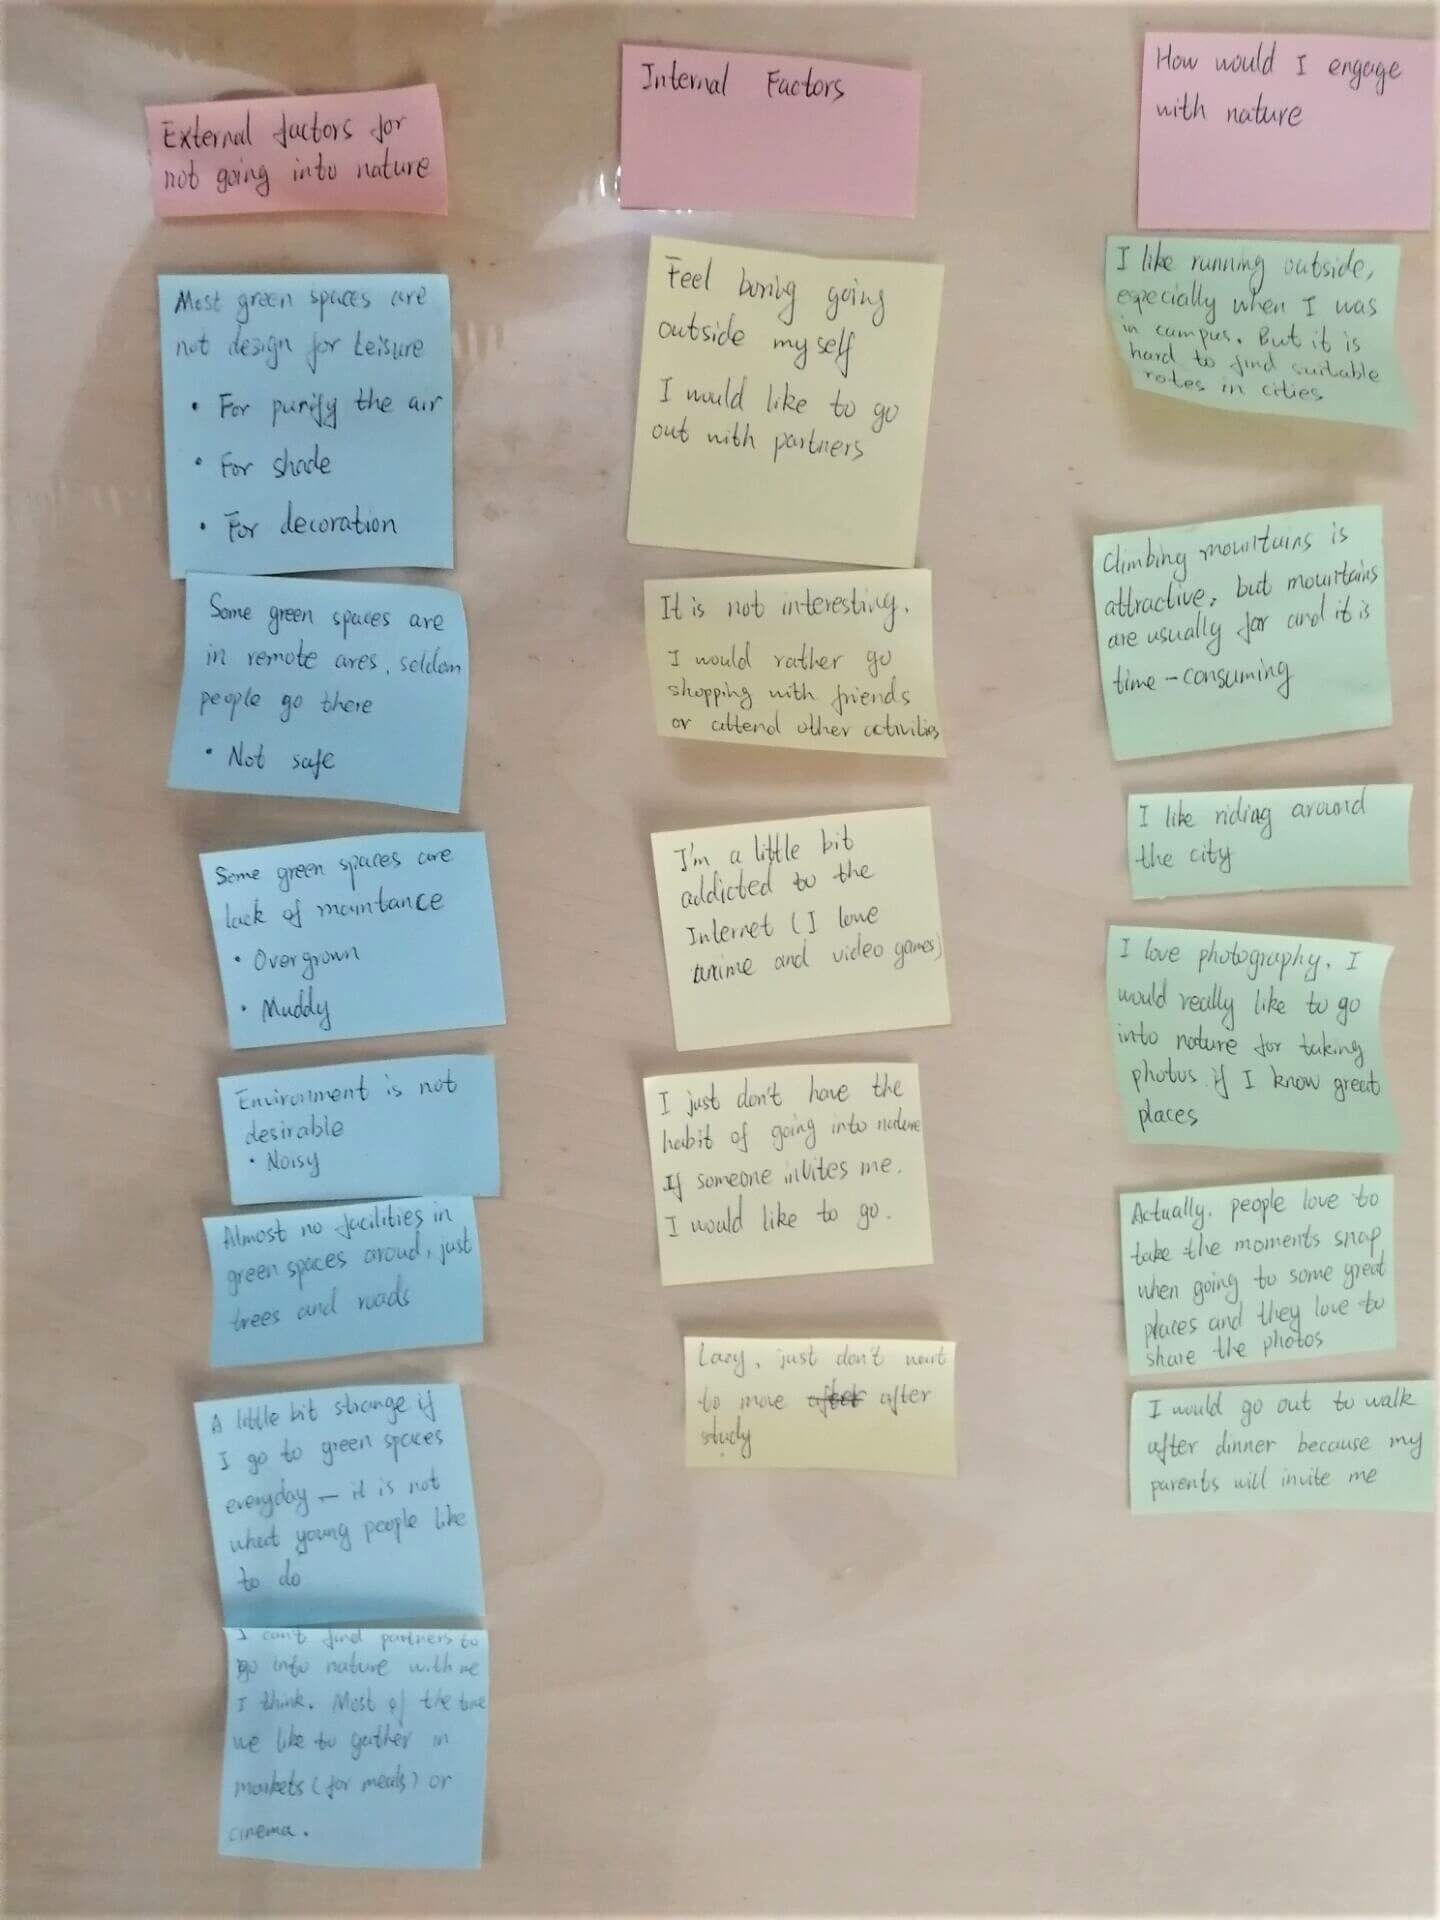 External factors for
not going into nature
Most green spaces are
not design for Leisure
• For purify the air
• For shade
• For decoration
Some green spaces are
in remote ares, seldom
people go there
• Not safe
Some green spaces are
lack of maintance
• Overgrown
• Muddy
Environment is not
desirable
• Noisy
Almost no facilities in
green spaces aroud, just
trees and roads
A little bit strange if
I go to green spaces
everyday — it is not
what young people like
to do
I can't find partners to
go into nature with me
I think. Most of the time
we like to gather in
markets (for meals) or
cinema.
Internal Factors
Feel boring going
outside myself
I would like to go
out with partners
It is not interesting.
I would rather go
shopping with friends
or attend other activities
I'm a little bit
addicted to the
Internet (I love
anime and video games)
I just don't have the
habit of going into nature
If someone invites me.
I would like to go.
Lazy, just don't want
to move after after
study
How would I engage
with nature
I like running outside,
especially when I was
in campus. But it is
hard to find suitable
rotes in cities
Climbing mountains is
attractive, but mountains
are usually far and it is
time-consuming
I like riding around
the city
I love photography. I
would really like to go
into nature for taking
photos if I know great
places
Actually. people love to
take the moments snap
when going to some great
places and they love to
share the photos
I would go out to walk
after dinner because my
parents will invite me